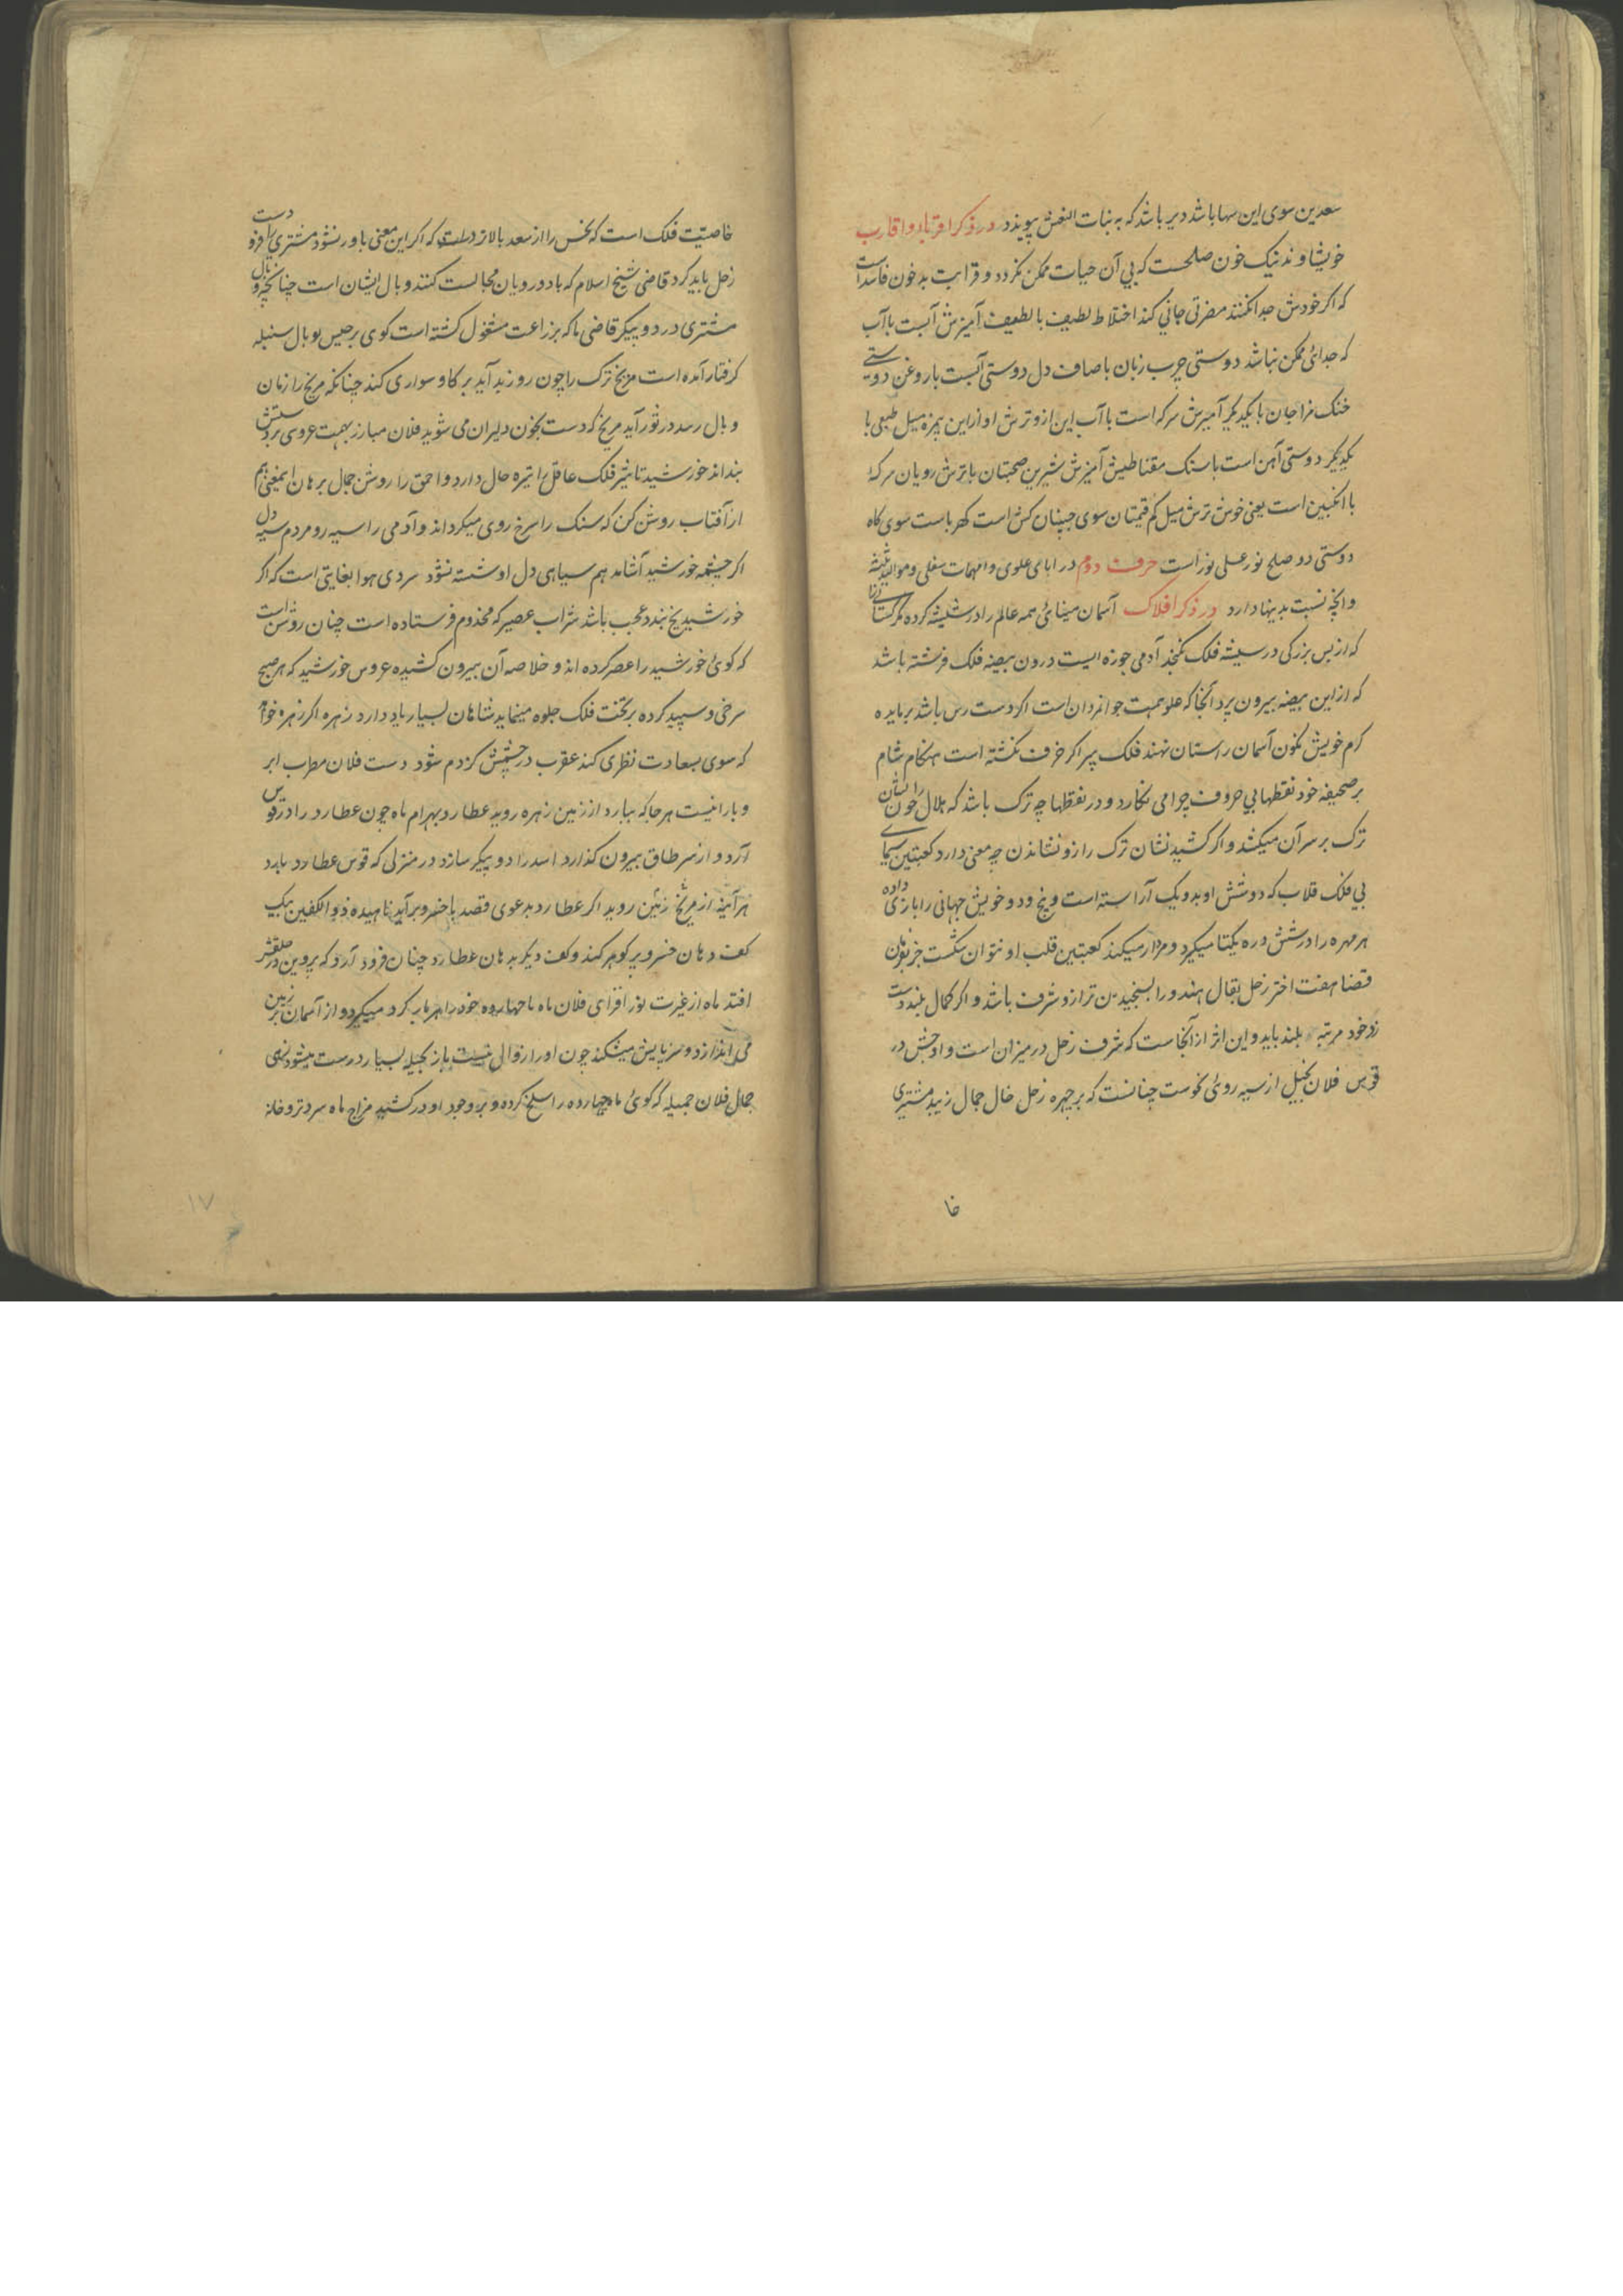 سعدین سوی این سها باشد دیر باشد که به بنات النعش پیوندد در ذکر اقربا و اقارب
خویشاوند نیک خون صلحست که بی آن حیات ممکن نگردد و قرابت بد خون فاسد است
که اگر خودش جدا نکنند مضرتی جانی کند اختلاط لطیف با لطیف آمیزش آبست با آب
که جدائی ممکن نباشد دوستی چرب زبان با صاف دل دوستی آبست با روغن دوستی
خنک مزاجان با یکدیگر آمیزش سرکه است با آب این ازو ترش او ازاین بمزه میل طبعی با
یکدیگر دوستی آهن است با سنک مقناطیس آمیزش شیرین صحبتان با ترش رویان سرکه
با انگبین است یعنی خوش ترش میل کم قیمتان سوی جنسان کش است کهرباست سوی کاه
دوستی دو صلح نور علی نور است حرف دوم در ابای علوی و امهات سفلی و موالید ثلثه
وانچه نسبت بدینها دارد در ذکر افلاک آسمان مینائی همه عالم را در شیشه کرده مگر کسانی را
که از بس بزرکی در شیشه فلک نکنجد آدمی جوزه ایست درون بیضه فلک فرشته باشد
که از این بیضه بیرون پرد آنجا که علو همت جوانمردان است اکر دست رس باشد بر مایده
کرم خویش نکون آسمان راستان نهند فلک پیر اکر خرف نکشته است هنکام شام
بر صحیفه خود نقطهای بی حروف چرا می نکارد و در نقطها چه ترک باشد که هلال را چون نشان
ترک بر سر آن میکشد و اکر کشید نشان ترک را زو نشاندن چه معنی دارد کعبتین سیمای
بی فلک قلاب که دو شش او بدو یک آراسته است و پنج و دو خویش جهانی را بازی داده
هر مهره را در ششدره یکتا میکیرد و مردار میکند کعبتین قلب او نتوان شکست جز بفرمان
قضا هفت اختر زحل بقال هندو را بسنجیدن ترازو شرف باشد و اکر کمال بلند دست
زد خود مرتبه بلند یابد و این اثر از آنجاست که شرف زحل در میزان است و اوجش در
قوس فلان بخیل از سیه روئی نحوست چنانست که بر چهره زحل خال جمال زیبد مشتری
خا
خاصیت فلک است که نحس را از سعد بالاتر داست که اکر این معنی باور نشود مشتری را فرو دست
زحل باید کرد قاضی شیخ اسلام که با دو رویان مجالست کنند وبال ایشان است چنانچه وبال
مشتری در دو پیکر قاضی ما که بزراعت مشغول کشته است کوی برجیس بوبال سنبله
کرفتار آمده است مریخ ترک را چون روز بد آید بر کاو سواری کند چنانکه مریخ را زمان
وبال رسد در ثور آید مریخ که دست بخون دلیران می شوید فلان مبارز بهمت عروسی بر دستش
بنداند خورشید تاثیر فلک عاقل را تیره حال دارد و احمق را روشن جمال برهان اینمعنی هم
از آفتاب روشن کن که سنک را سرخ روی میکرداند و آدمی را سیه رو مردم سیه دل
اکر چشمه خورشید آشامد هم سیاهی دل او شسته نشود سردی هوا بغایتی است که اکر
خورشید یخ بندد عجب باشد شراب عصیر که مخدوم فرستاده است چنان روشن است
که کوئی خورشید را عصر کرده اند و خلاصه آن بیرون کشیده عروس خورشید که هر صبح
سرخی و سپید کرده بر تخت فلک جلوه مینماید شاهان بسیار یاد دارد زهره اکر زهره خواهد
که سوی سعادت نظری کند عقرب در چشمش کژدم شود دست فلان مطرب ابر
و بارانیست هر جا که ببارد از زمین زهره روید عطارد بهرام ماه چون عطارد را در قوس
آرد و از سر طاق بیرون کذارد اسد را دو پیکر سازد در منزلی که قوس عطارد بارد
هر آینه از مریخ زمین روید اکر عطارد بدعوی قصد با خسرو برآید ناهیده ذو الکفین بیک
کف دهان خسرو پر کوهر کند و کف دیکر بدهان عطارد چنان فرود آرد که پروین در حلقش
افتد ماه از غیرت نور افزای فلان ماه تا چهارده خود را هر باب کرد میکیرد و از آسمان بر زمین
می اندازد و سر پایش میشکند چون او را زوالی نیست باز بحیله بسیار درست میشود زهی
جمال فلان جمیله که کوئی ماه چهارده را سلخ کرده و بر وجود او در کشیده مزاج ماه سرد تر و خانه
۱۷